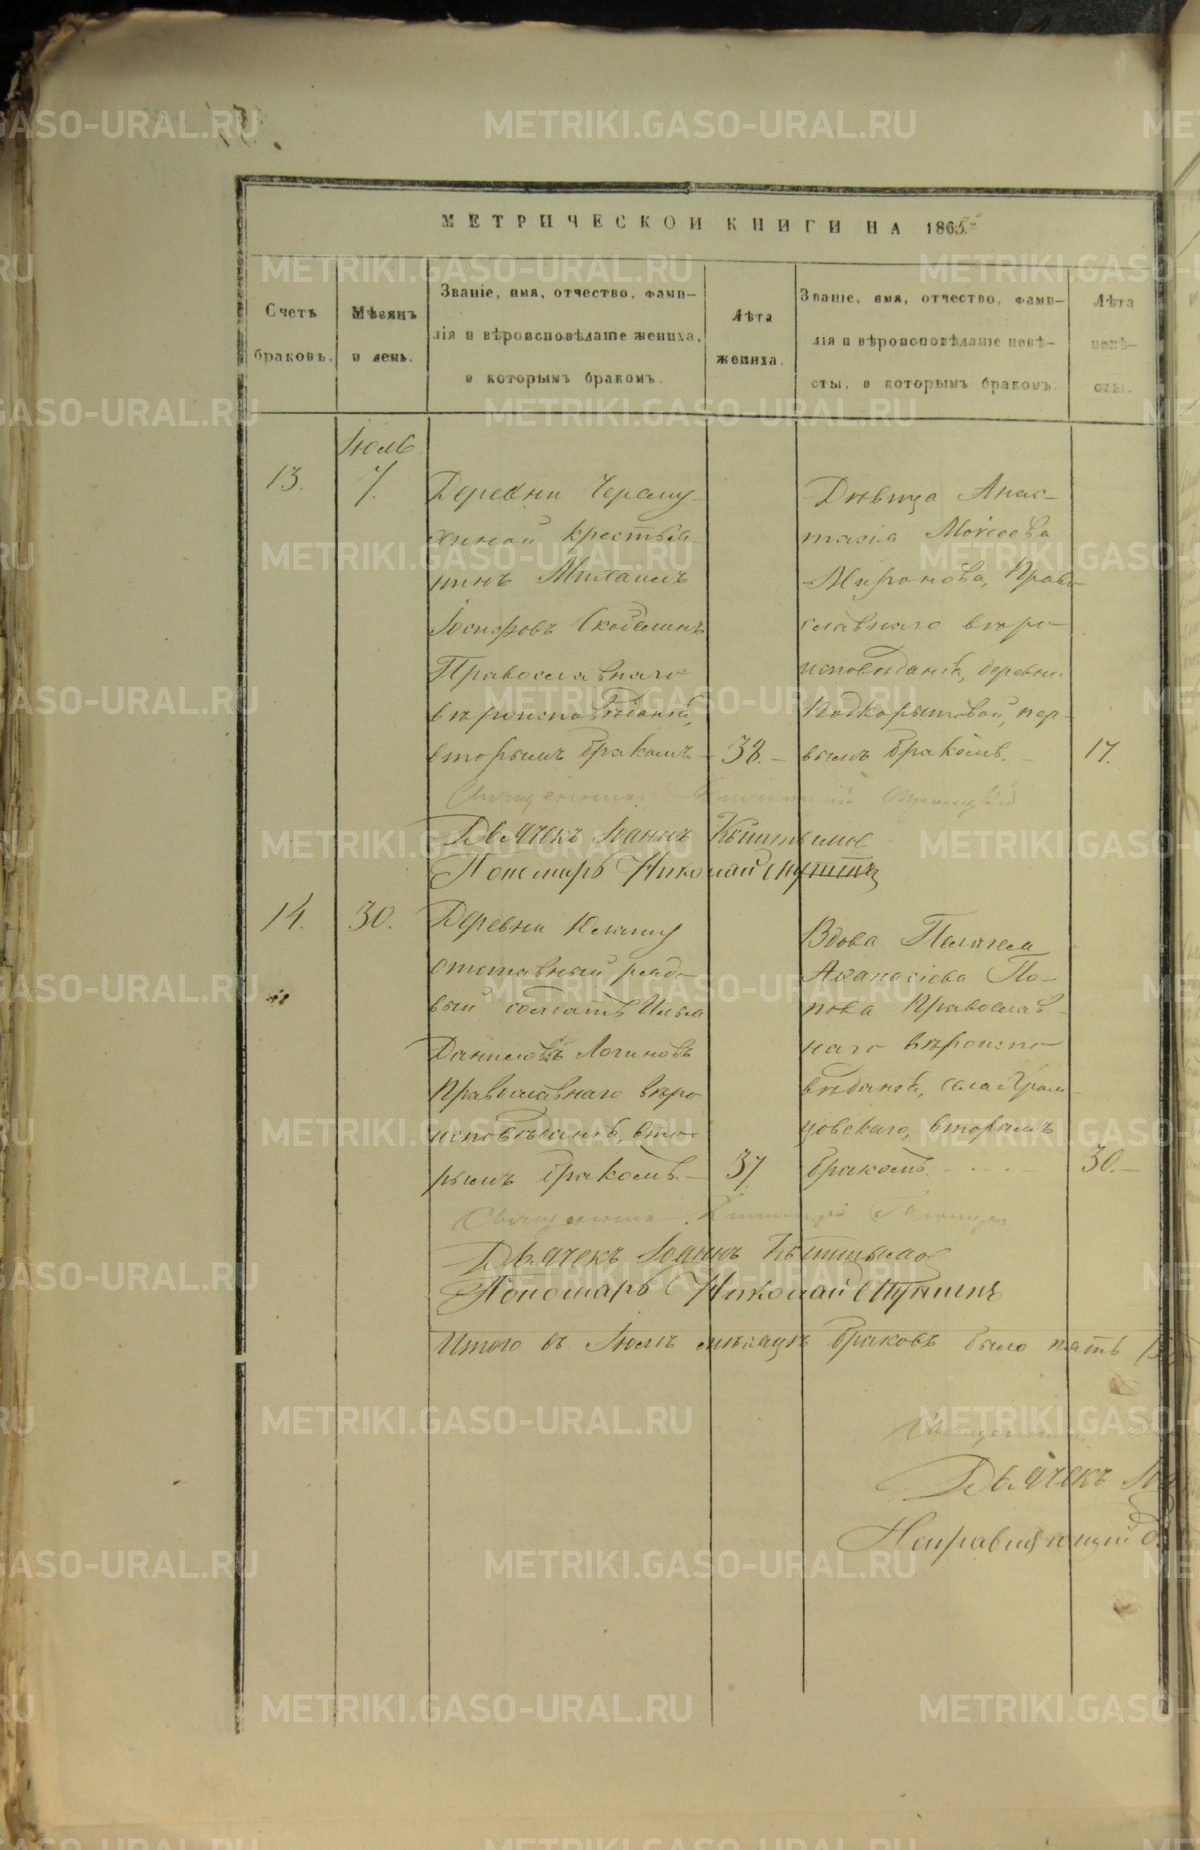 МЕТРИЧЕСКОЙ КНИГИ НА 1865.
Счетъ
браковъ.
Мѣсяцъ
и день.
Званіе, имя, отчество, фами-
лія и вѣроисповѣданіе жениха,
и которымъ бракомъ.
Лѣта
жениха.
Званіе, имя, отчество, фами-
лія и вѣроисповѣданіе невѣ-
сты, и которымъ бракомъ.
Лѣта
невѣ-
сты.
Іюль
13.
7.
Деревни Черему-
хиной крестья
нинъ Михаилъ
Іосифовъ Скобелинъ
Православнаго
вѣроисповѣданія,
вторымъ бракомъ
38.
Дѣвица Анас-
тасія Моисеева
Миронова, Право
славнаго вѣро
исповѣданія, деревни
Подкорытовой, пер-
вымъ бракомъ.
17.
Священникъ
Дьячекъ Іоаннъ Кыштымов
Пономарь Николай
14.
30.
Деревни
отставный рядо
вый солдатъ Илья
Даниловъ Логиновъ
Православнаго вѣро
исповѣданія, вто-
рымъ бракомъ.
37
Вдова Пелагея
Аѳанасіева По-
пова Православ-
наго вѣроиспо-
вѣданія, села Храм
цовскаго, вторымъ
бракомъ.
30.
Священникъ
Дьячекъ Іоаннъ Кыштымов
Пономарь Николай
Итого въ Іюлѣ мѣсяцѣ браковъ было пять
Священникъ
Дьячекъ
Исправляющій
METRIKI.GASO-URAL.RU